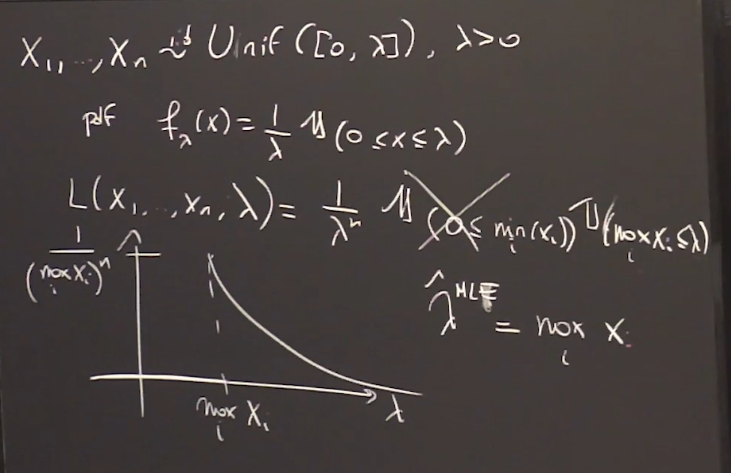 X₁,...,Xₙ i.i.d ~ Unif([0, λ]), λ>0
pdf f_λ(x) = 1/λ 𝟙(0 ≤ x ≤ λ)
L(x₁,...,xₙ, λ) = 1/λⁿ 𝟙(0 ≤ min_i(xᵢ)) 𝟙(max_i xᵢ ≤ λ)
1/(max_i xᵢ)ⁿ
λ̂^MLE = max_i x
max_i Xᵢ λ